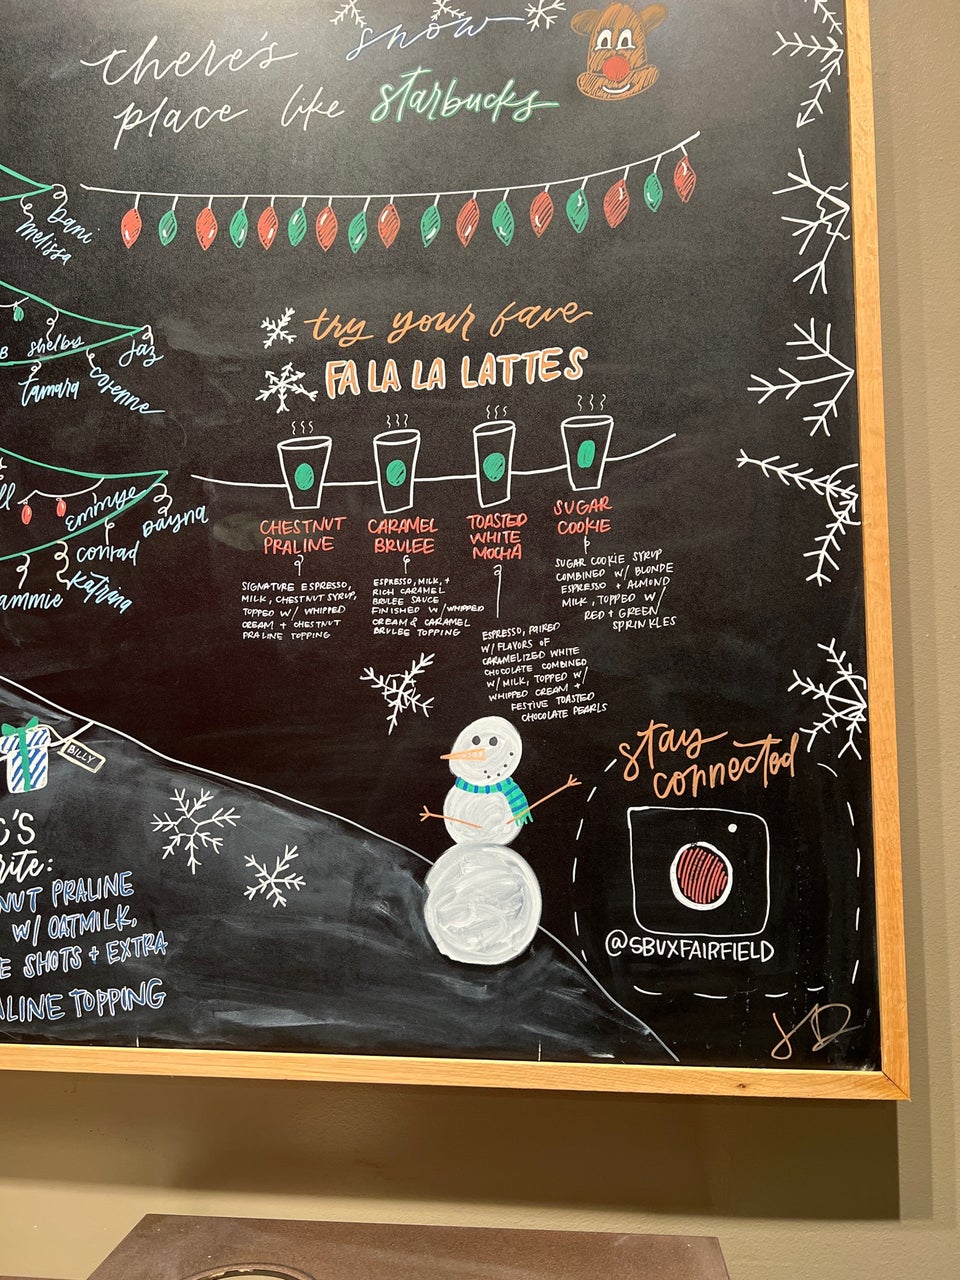 there's snow
place like starbucks
Dani
Melissa
shelby
Jaz
tamara
emmye
dayna
conrad
Katriana
ammie
try your fave
FA LA LA LATTES
CHESTNUT
PRALINE
SIGNATURE ESPRESSO,
MILK, CHESTNUT SYRUP,
TOPPED W/ WHIPPED
CREAM + CHESTNUT
PRALINE TOPPING
CARAMEL
BRULEE
ESPRESSO, MILK, +
RICH CARAMEL
BRULEE SAUCE
FINISHED W/ WHIPPED
CREAM & CARAMEL
BRULEE TOPPING
TOASTED
WHITE
MOCHA
ESPRESSO, PAIRED
W/ FLAVORS OF
CARAMELIZED WHITE
CHOCOLATE COMBINED
W/ MILK, TOPPED W/
WHIPPED CREAM +
FESTIVE TOASTED
CHOCOLATE PEARLS
SUGAR
COOKIE
SUGAR COOKIE SYRUP
COMBINED W/ BLONDE
ESPRESSO + ALMOND
MILK, TOPPED W/
RED + GREEN
SPRINKLES
BILLY
C'S
rite:
NUT PRALINE
W/ OATMILK,
E SHOTS + EXTRA
ALINE TOPPING
stay
connected
@SBUXFAIRFIELD
JD